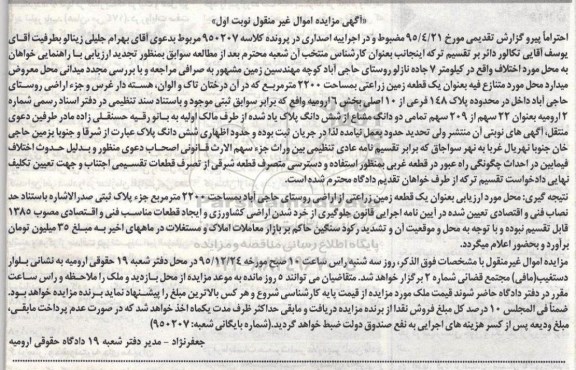 «آگهی مزایده اموال غیر منقول نوبت اول»
احتراماً پیرو گزارش تقدیمی مورخ ۹۵/۴/۲۱ مضبوط و در اجراییه اصداری در پرونده کلاسه ۹۵۰۲۰۷ مربوط بدعوی آقای بهرام جلیلی زینالو بطرفیت آقای
یوسف آقایی تکالور دائر بر تقسیم ترکه اینجانب بعنوان کارشناس منتخب آن شعبه محترم بعد از مطالعه سوابق بمنظور تجدید ارزیابی با راهنمایی خواهان
به محل مورد اختلاف واقع در کیلومتر ۷ جاده نازلو روستای حاجی آباد کوچه مهندسین زمین مشهور به صرافی مراجعه و با بررسی مجدد میدانی محل معروض
میدارد محل مورد متنازع فیه بعنوان یک قطعه زمین زراعتی بمساحت ۲۲۰۰ مترمربع که در آن درختان تاک و الوان، هسته دار غرس و جزء اراضی روستای
حاجی آباد داخل در محدوده پلاک ۱۴۸ فرعی از ۱۰ اصلی بخش ۱۰ ارومیه واقع که برابر سوابق ثبتی موجود و باستناد سند تنظیمی در دفتر اسناد رسمی شماره
۲ ارومیه بعنوان ۲۲ سهم از ۲۰۹ سهم تمامی دو دانگ مشاع از شش دانگ پلاک یاد شده از طرف مالک اولیه به بانو رقیه حسنقلی زاده مادر طرفین دعوی
منتقل، آگهی های نوبتی آن منتشر ولی تحدید حدود بعمل نیامده لذا در جریان ثبت بوده و حدود اظهاری شش دانگ پلاک عبارت از شرقا و جنوبا بزمین حاجی
خان جنوبا نهریال غربا به نهر سواجاق که برابر تقسیم نامه عادی تنظیمی بین وراث جزء سهم الارث قانونی اصحاب دعوی منظور و بدلیل حدوث اختلاف
فیمابین در احداث چگونگی راه عبور در قطعه غربی بمنظور استفاده و دسترسی متصرف قطعه شرقی از تصرف قطعات تقسیمی اجتناب و جهت تعیین تکلیف
نهایی دادخواست تقسیم ترکه از طرف خواهان تقدیم دادگاه محترم شده است.
نتیجه گیری: محل مورد ارزیابی بعنوان یک قطعه زمین زراعتی از اراضی روستای حاجی آباد بمساحت ۲۲۰۰ مترمربع جزء پلاک ثبتی صدرالاشاره باستناد حد
نصاب فنی و اقتصادی تعیین شده در آیین نامه اجرایی قانون جلوگیری از خرد شدن اراضی کشاورزی و ایجاد قطعات مناسب فنی و اقتصادی مصوب ۱۳۸۵
قابل تقسیم نبوده و با توجه به محل و موقعیت آن و تشدید رکود سنگین حاکم بر بازار معاملات املاک و مستغلات در ماههای اخیر به مبلغ ۳۵ میلیون تومان
برآورد و بحضور اعلام میگردد.
مزایده اموال غیرمنقول با مشخصات فوق الذکر، روز سه شنبه راس ساعت ۱۰ صبح مورخه ۹۵/۱۲/۲۴ در محل دفتر شعبه ۱۹ حقوقی ارومیه به نشانی بلوار
دستغیب(مافی) مجتمع قضائی شماره ۲ برگزار خواهد شد. متقاضیان می توانند ۵ روز مانده به موعد مزایده از محل بازدید و ملک را ملاحظه و راس ساعت
مقرر در دفتر دادگاه حاضر شوند قیمت ملک مورد مزایده از قیمت پایه کارشناسی شروع و هر کس بالاترین مبلغ را پیشنهاد نماید برنده مزایده خواهد بود.
ضمناً فی المجلس ۱۰ درصد کل مبلغ فروش نقدا از برنده مزایده دریافت و مابقی حداکثر ظرف مدت یکماه اخذ خواهد شد که در صورت عدم پرداخت مابقی،
مبلغ ودیعه پس از کسر هزینه های اجرایی به نفع صندوق دولت ضبط خواهد گردید.(شماره بایگانی شعبه: ۹۵۰۲۰۷)
جعفرنژاد - مدیر دفتر شعبه ۱۹ دادگاه حقوقی ارومیه